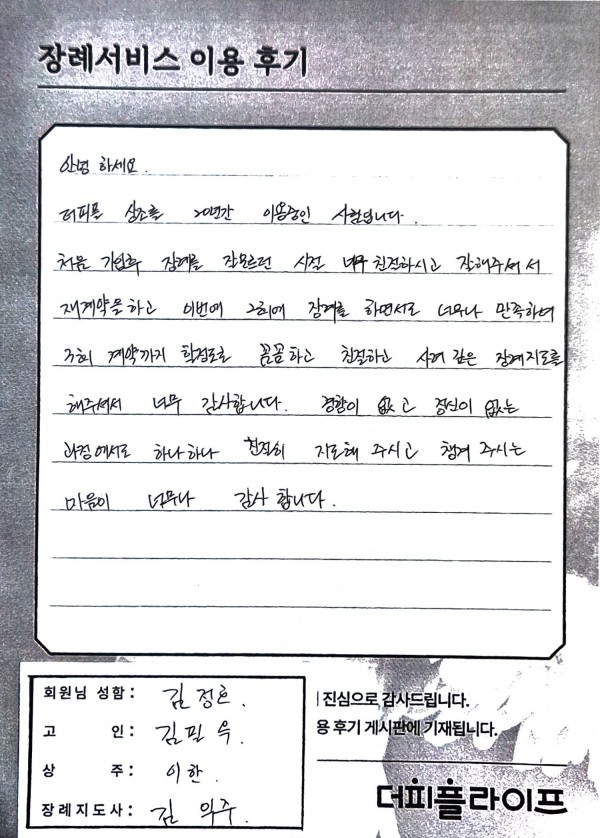 장례서비스 이용 후기
안녕 하세요.
더피플 상조를 20년간 이용중인 사람입니다.
처음 가입후 장례를 잘모르던 시절 너무 친절하시고 잘해주셔서
재계약을하고 이번에 2회에 장례를 하면서도 너무나 만족하여
3회 계약까지 할정도로 꼼꼼하고 친절하고 사려 깊은 장례지도를
해주셔서 너무 감사합니다. 경황이 없고 정신이 없는
과정에서도 하나하나 친절히 지도해 주시고 챙겨 주시는
마음이 너무나 감사 합니다.
회원님 성함 : 김정
고 인 : 김필욱
상 주 : 이한
장례지도사 : 김
진심으로 감사드립니다.
용 후기 게시판에 기재됩니다.
더피플라이프